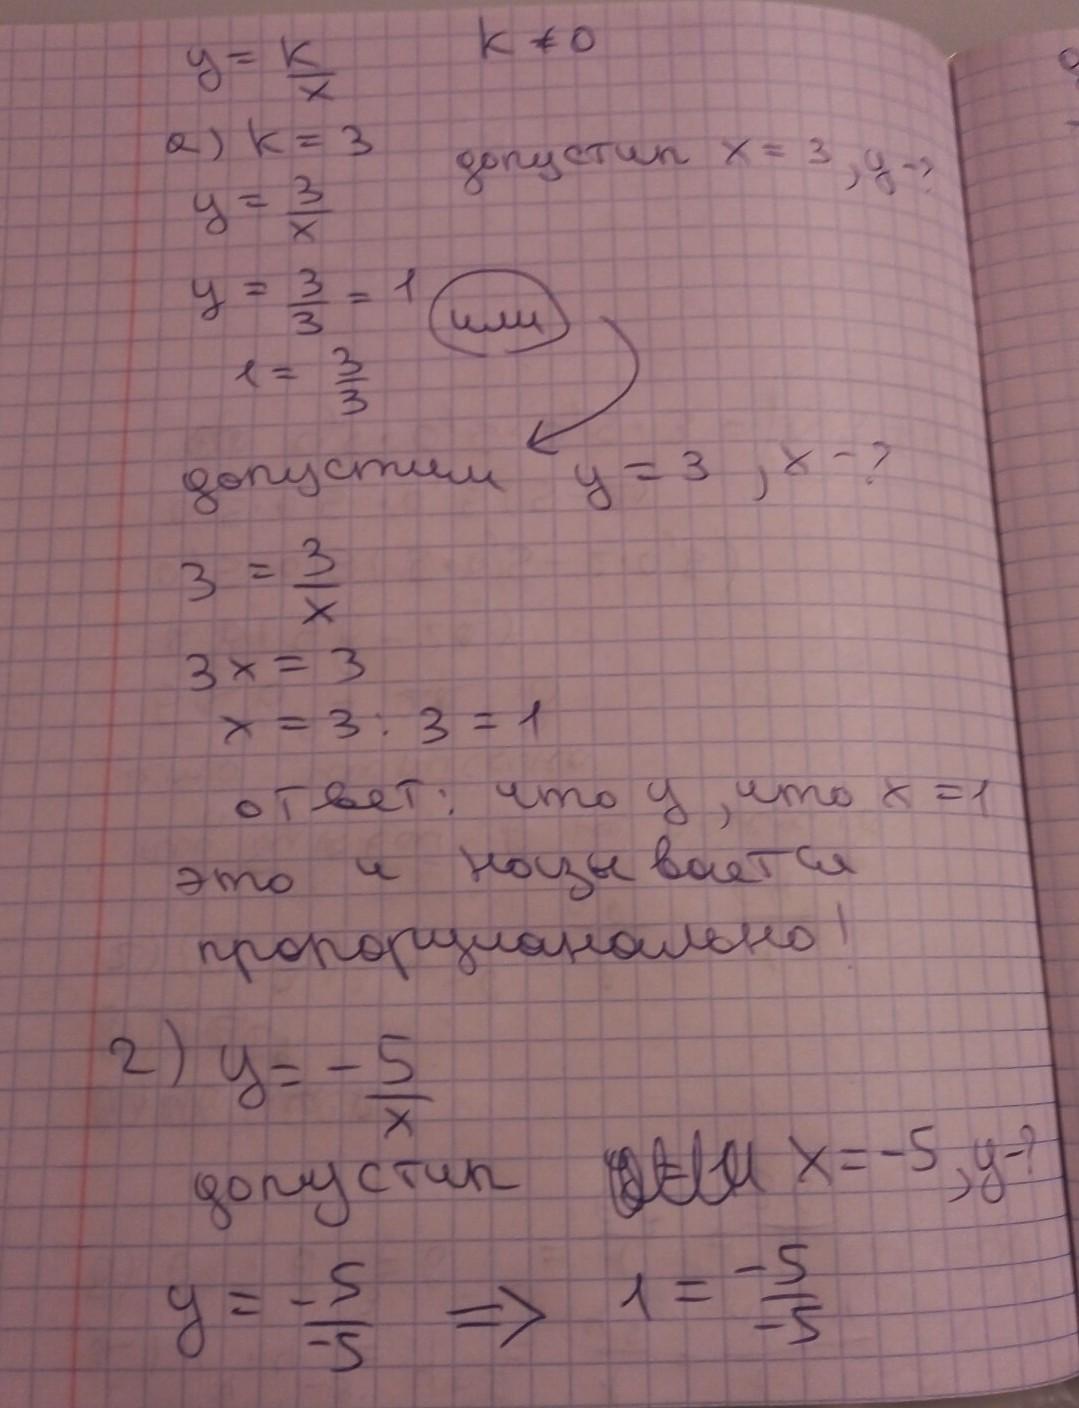 y = k/x k ≠ 0
а) k = 3 допустим x = 3, y - ?
y = 3/x
y = 3/3 = 1 или
1 = 3/3
допустим y = 3, x - ?
3 = 3/x
3x = 3
x = 3 : 3 = 1
ответ: что y, что x = 1
это и называется
пропорцианально!
2) y = - 5/x
допустим x = -5, y - ?
y = -5/-5 ⇒ 1 = -5/-5